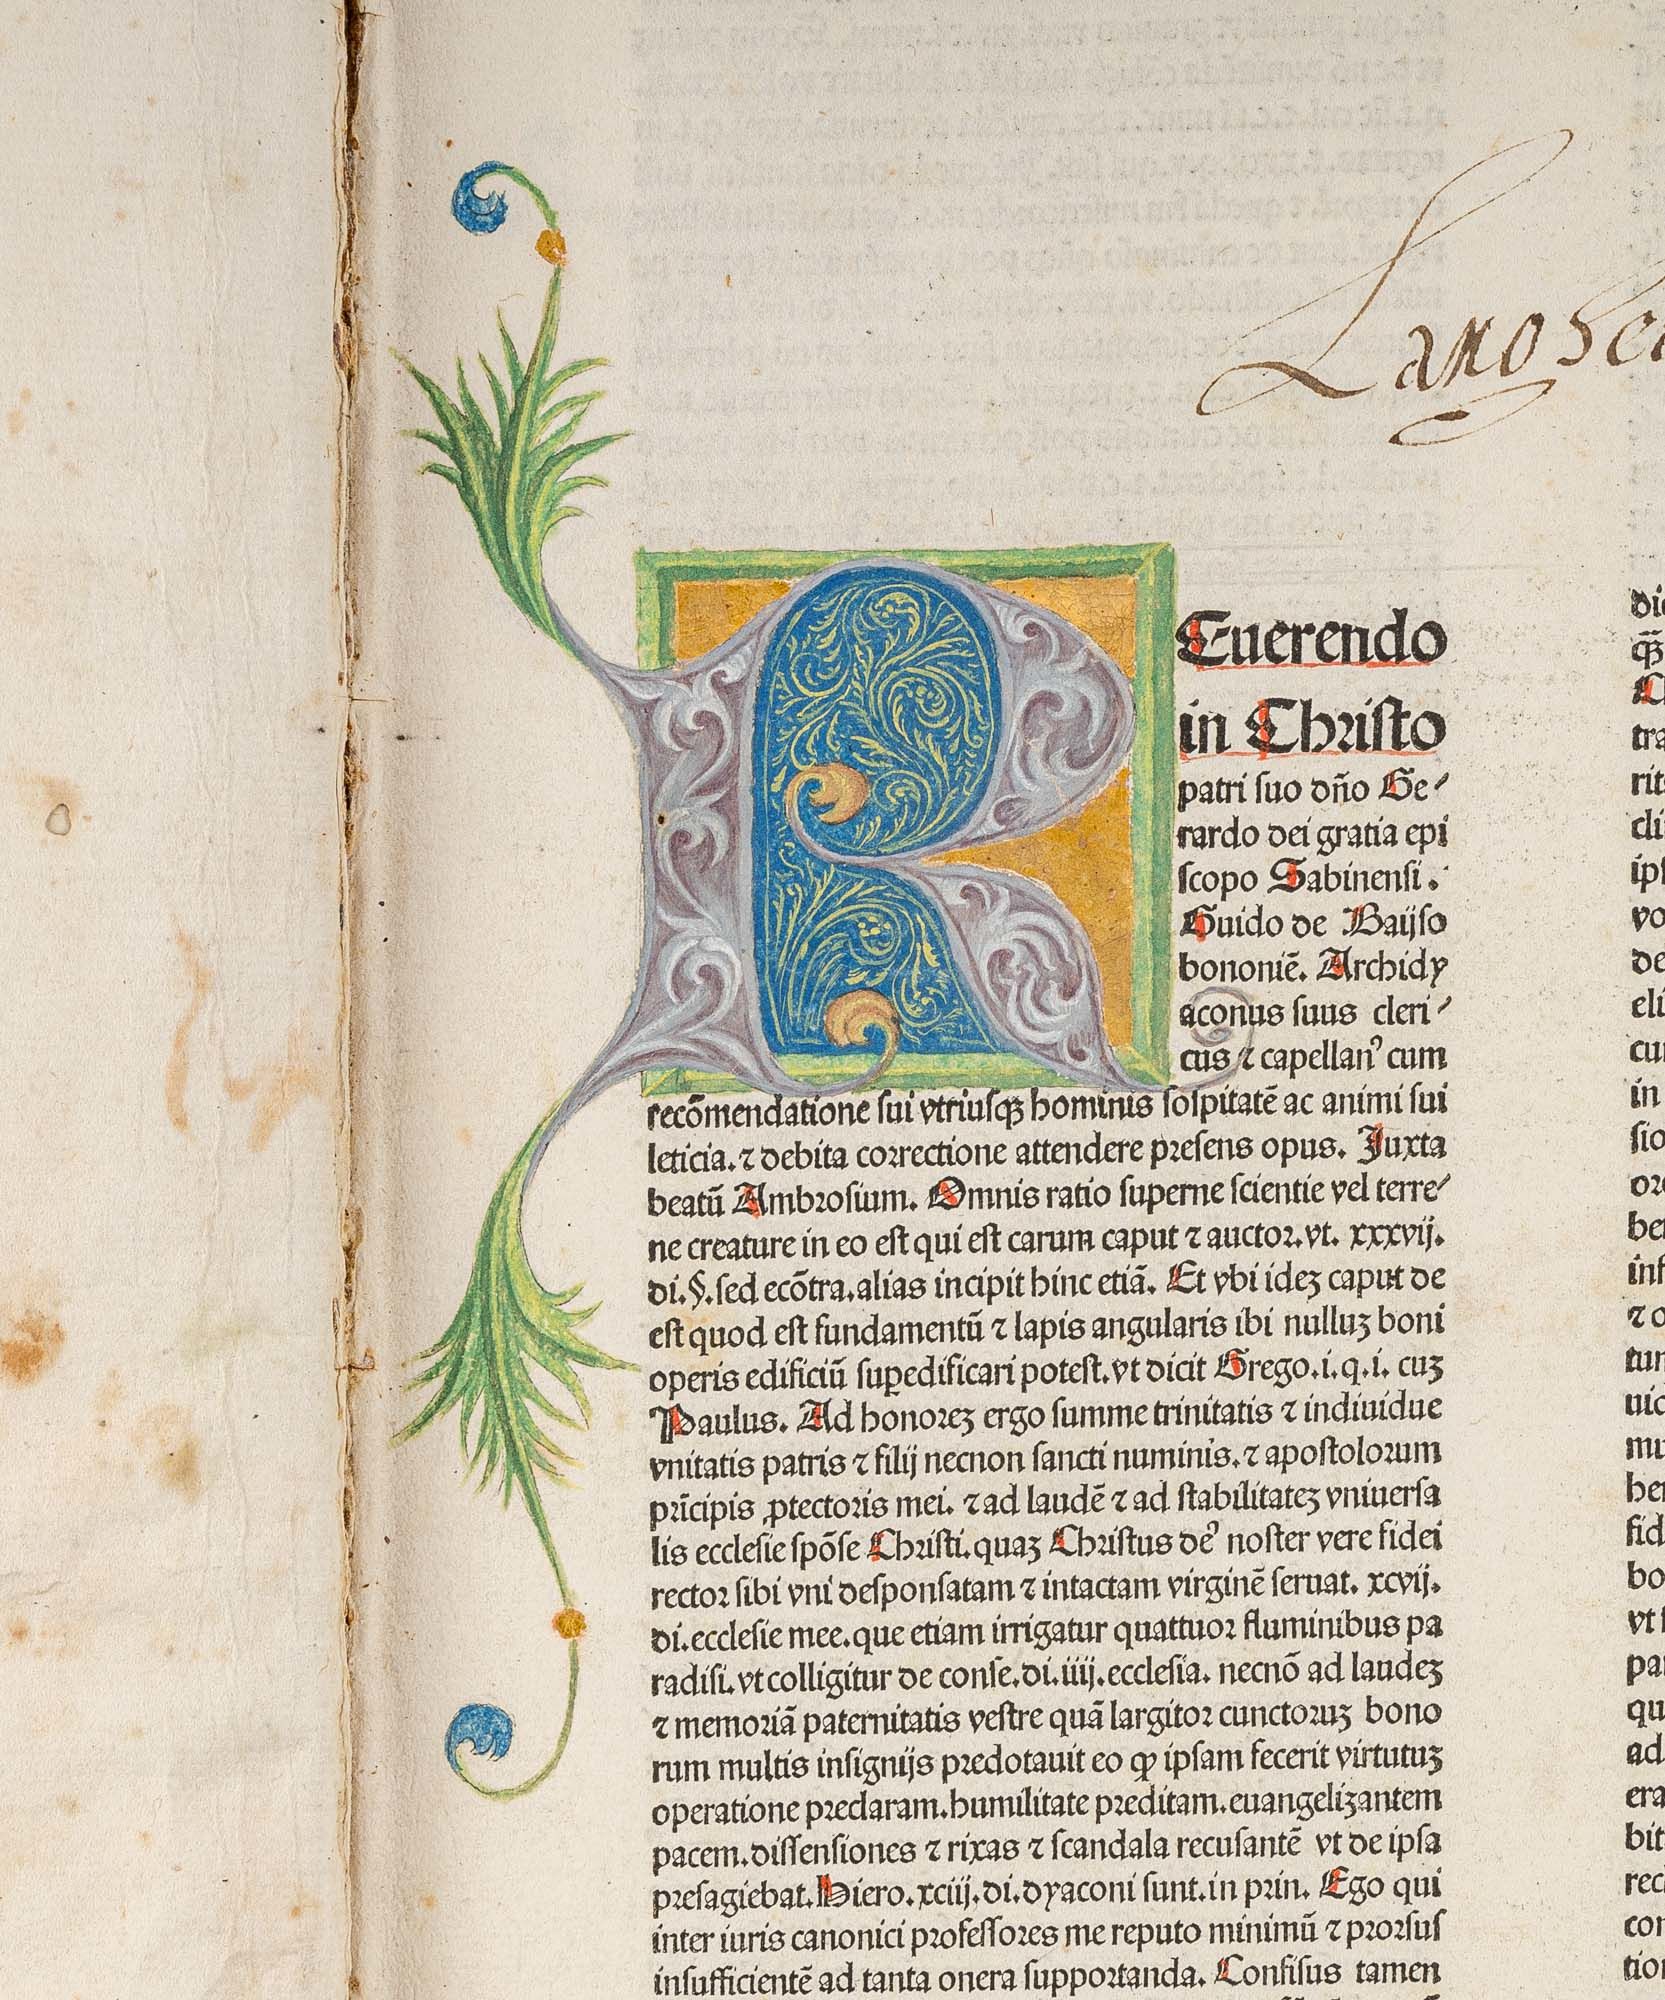 REuerendo
in Christo
patri suo dño Ge⸗
rardo dei gratia epi
scopo Sabinensi.
Guido de Baijso
bononiē. Archidy
aconus suus cleri⸗
cus ⁊ capellanꝰ cum
recōmendatione sui vtriusqꝫ hominis sospitatē ac animi sui
leticia.⁊ debita correctione attendere presens opus. Juxta
beatū Ambrosium. Omnis ratio superne scientie vel terre⸗
ne creature in eo est qui est carum caput ⁊ auctor.vt. xxxvij.
di.§.sed ecōtra.alias incipit hinc etiā. Et vbi ideꝫ caput de
est quod est fundamentū ⁊ lapis angularis ibi nulluꝫ boni
operis edificiū suꝑedificari potest.vt dicit Grego.i.q.i. cuꝫ
Paulus. Ad honoreꝫ ergo summe trinitatis ⁊ indiuidue
vnitatis patris ⁊ filij necnon sancti numinis.⁊ apostolorum
prīcipis ꝓtectoris mei. ⁊ ad laudē ⁊ ad stabilitateꝫ vniuersa
lis ecclesie spōse Christi.quaꝫ Christus deꝰ noster vere fidei
rector sibi vni desponsatam ⁊ intactam virginē seruat. xcvij.
di.ecclesie mee.que etiam irrigatur quattuor fluminibus pa
radisi.vt colligitur de conse.di.iiij.ecclesia. necnō ad laudeꝫ
⁊ memoriā paternitatis vestre quā largitor cunctoruꝫ bono
rum multis insignijs predotauit eo ꝙ ipsam fecerit virtutuꝫ
operatione preclaram.humilitate preditam.euangeliꝫantem
pacem.dissensiones ⁊ rixas ⁊ scandala recusantē vt de ipsa
presagiebat.Hiero.xciij.di.dyaconi sunt.in prin. Ego qui
inter iuris canonici professores me reputo minimū ⁊ prorsus
insufficientē ad tanta onera supportanda. Confisus tamen